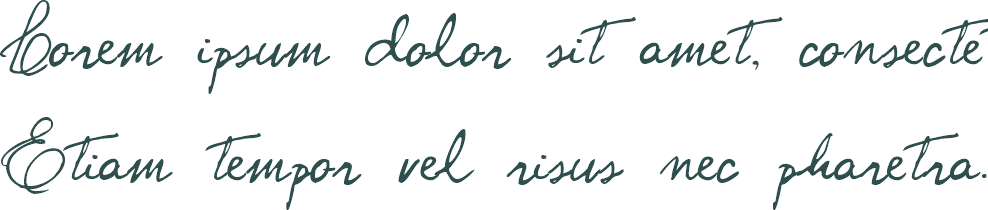 Lorem ipsum dolor sit amet, consecte
Etiam tempor vel risus nec pharetra.